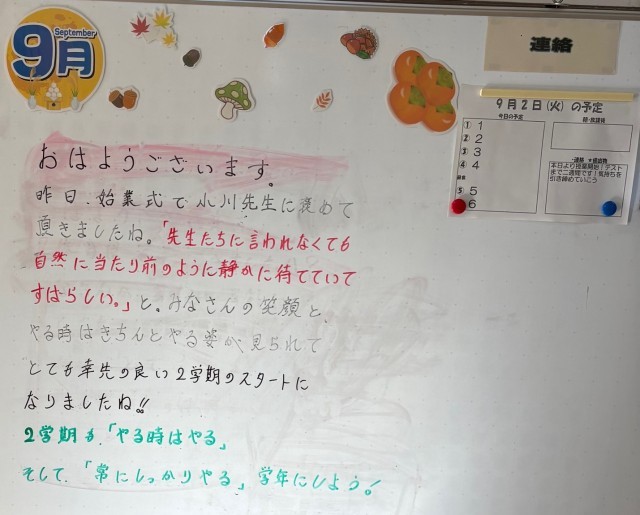 September
9月
連絡
おはようございます。
昨日、始業式で小川先生に褒めて
頂きましたね。「先生たちに言われなくても
自然に当たり前のように静かに待てていて
すばらしい。」と。みなさんの笑顔と、
やる時はきちんとやる姿が見られて
とても幸先の良い2学期のスタートに
なりましたね!!
2学期も、「やる時はやる」
そして、「常にしっかりやる」学年にしよう!
9月2日(火)の予定
今日の予定
① 1
② 2
③ 3
④ 4
⑤ 5
6
本日より授業開始!テスト
まで二週間です!気持ちを
引き締めていこう